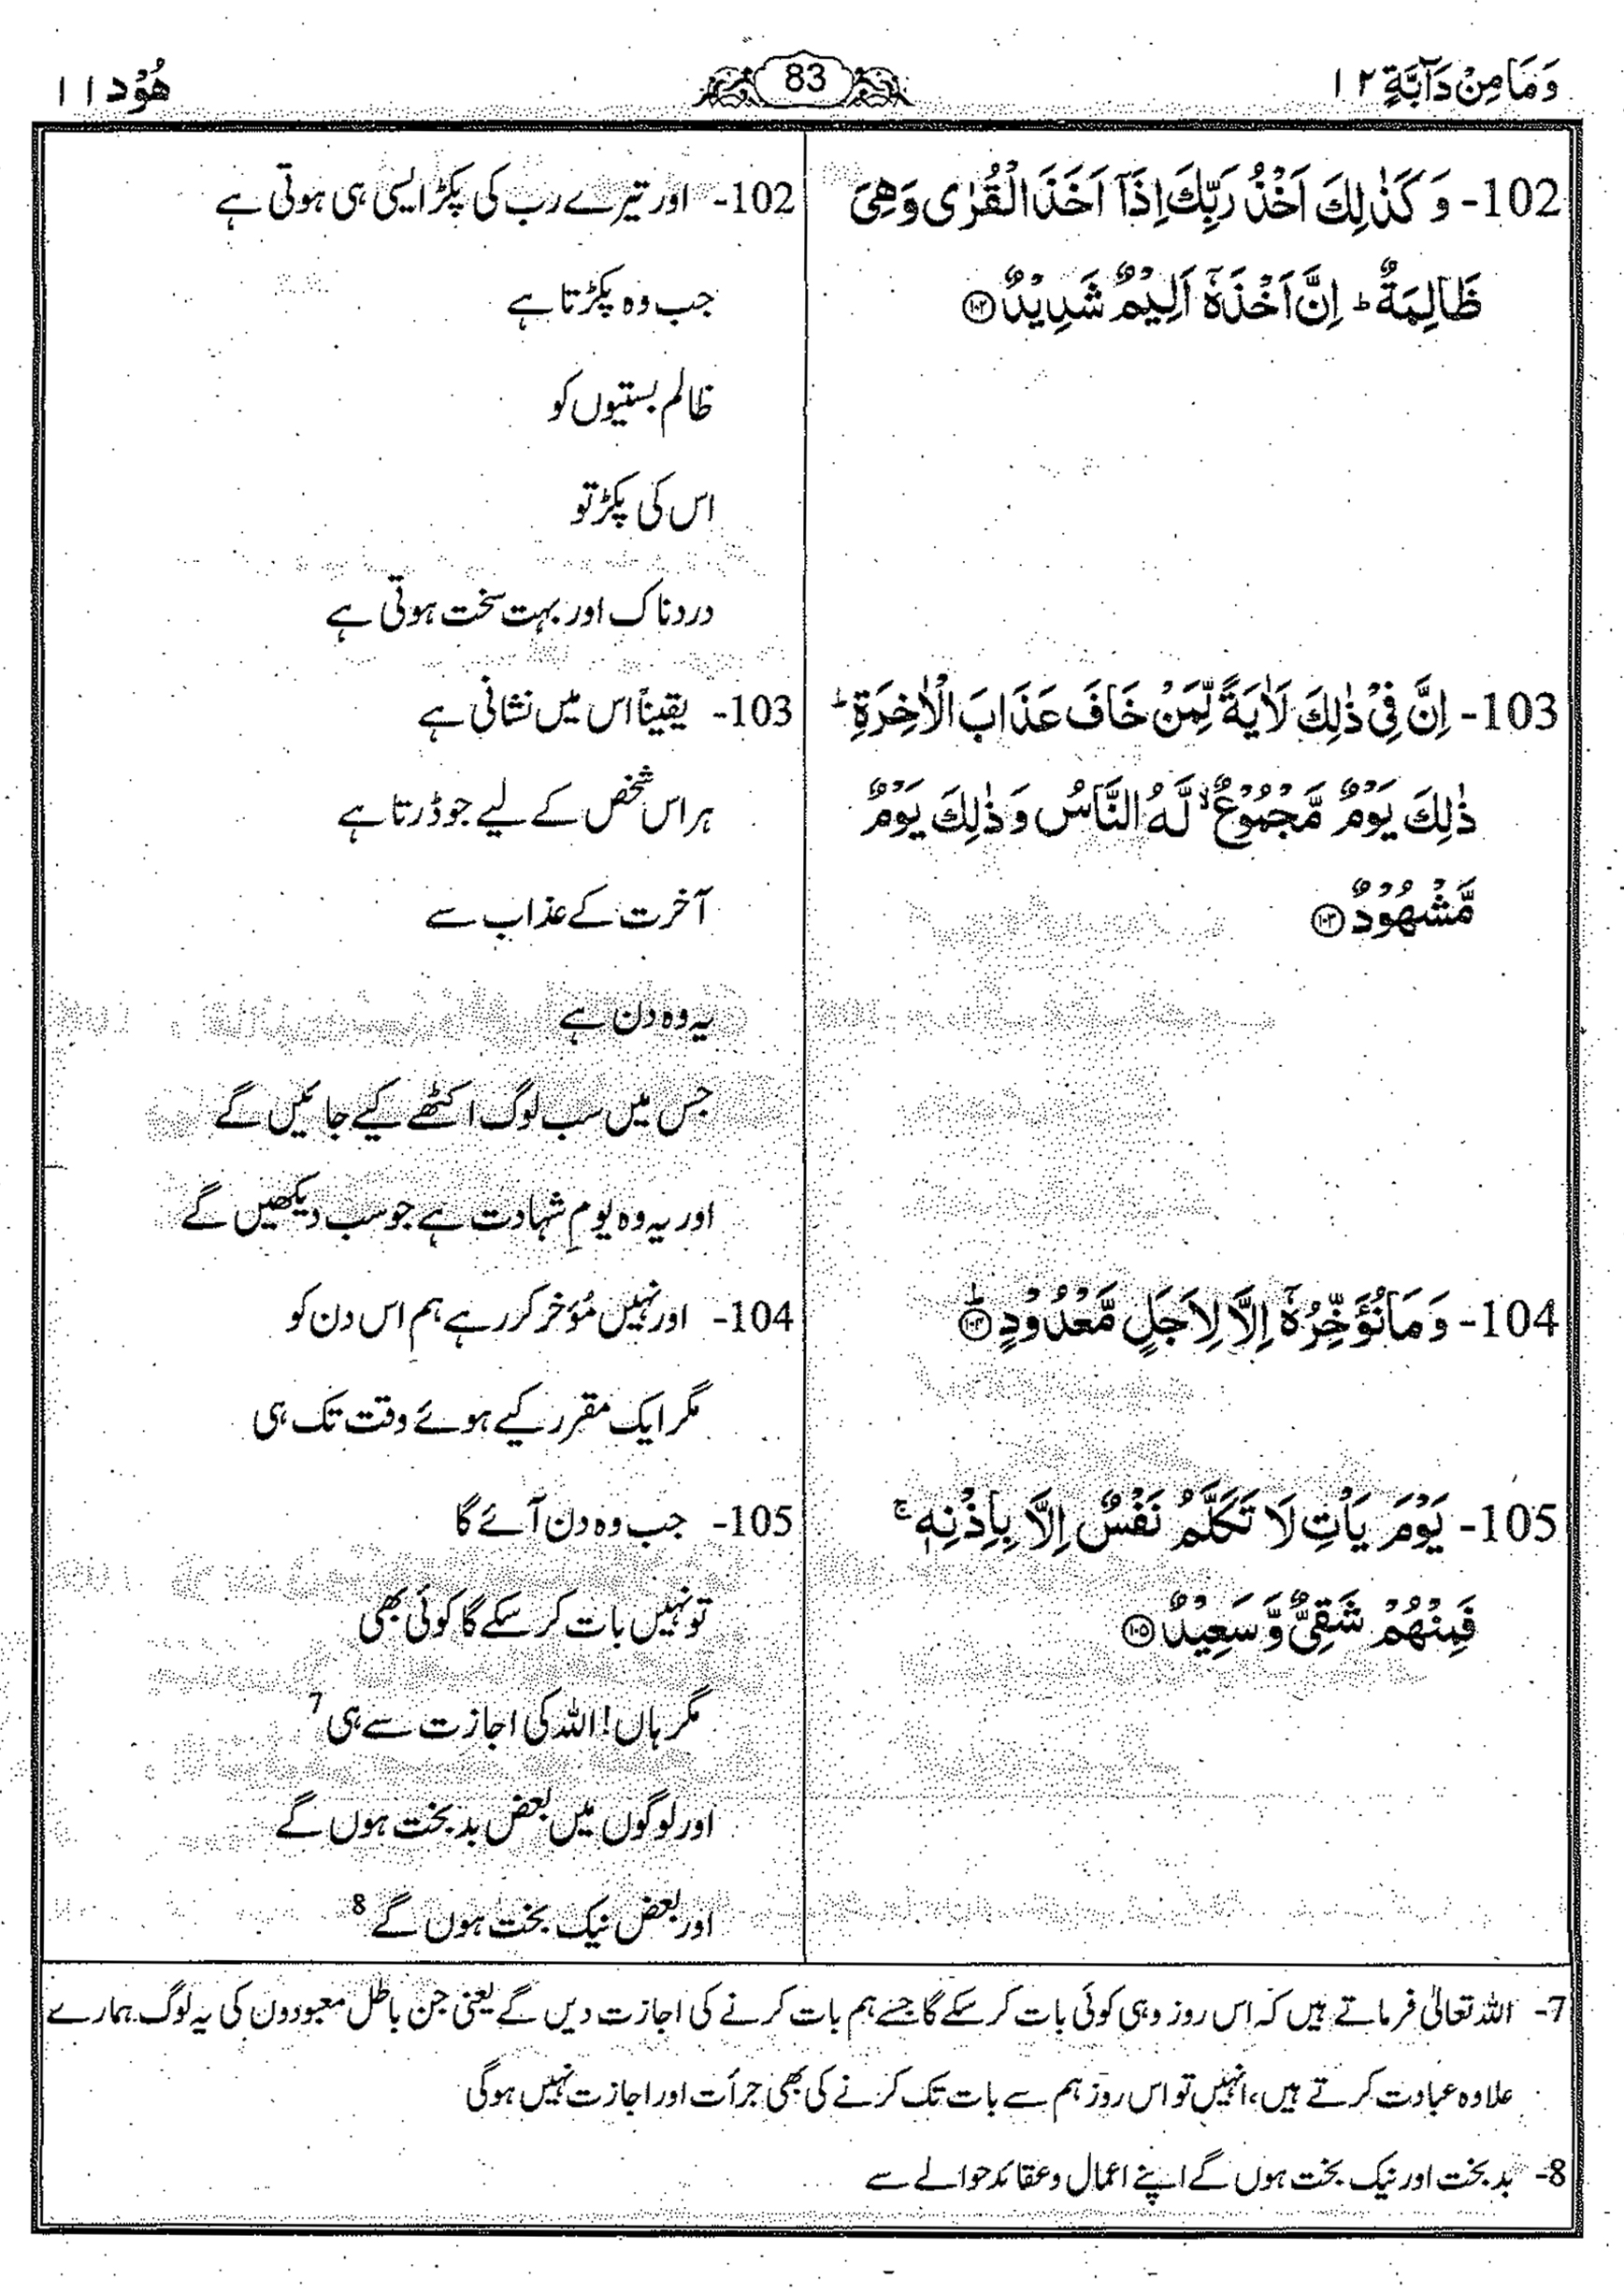 وَمَا مِنْ دَآبَّةٍ ۱۲
83
هُوْد ۱۱
102- وَ كَذٰلِكَ اَخْذُ رَبِّكَ اِذَاۤ اَخَذَ الْقُرٰى وَ هِیَ
ظَالِمَةٌ ؕ اِنَّ اَخْذَهٗۤ اَلِیْمٌ شَدِیْدٌ ﴿۱۰۲﴾
102- اور تیرے رب کی پکڑ ایسی ہی ہوتی ہے
جب وہ پکڑتا ہے
ظالم بستیوں کو
اس کی پکڑ تو
دردناک اور بہت سخت ہوتی ہے
103- اِنَّ فِیْ ذٰلِكَ لَاٰیَةً لِّمَنْ خَافَ عَذَابَ الْاٰخِرَةِ ؕ
ذٰلِكَ یَوْمٌ مَّجْمُوْعٌ ۙ لَّهُ النَّاسُ وَ ذٰلِكَ یَوْمٌ
مَّشْهُوْدٌ ﴿۱۰۳﴾
103- یقیناً اس میں نشانی ہے
ہر اس شخص کے لیے جو ڈرتا ہے
آخرت کے عذاب سے
یہ وہ دن ہے
جس میں سب لوگ اکٹھے کیے جائیں گے
اور یہ وہ یومِ شہادت ہے جو سب دیکھیں گے
104- وَ مَا نُؤَخِّرُهٗۤ اِلَّا لِاَجَلٍ مَّعْدُوْدٍ ؕ﴿۱۰۴﴾
104- اور نہیں مُؤخر کر رہے ہم اِس دن کو
مگر ایک مقرر کیے ہوئے وقت تک ہی
105- یَوْمَ یَاْتِ لَا تَكَلَّمُ نَفْسٌ اِلَّا بِاِذْنِهٖ ۚ
فَمِنْهُمْ شَقِیٌّ وَّ سَعِیْدٌ ﴿۱۰۵﴾
105- جب وہ دن آئے گا
تو نہیں بات کر سکے گا کوئی بھی
مگر ہاں! اللہ کی اجازت سے ہی 7
اور لوگوں میں بعض بدبخت ہوں گے
اور بعض نیک بخت ہوں گے 8
7- اللہ تعالیٰ فرماتے ہیں کہ اس روز وہی کوئی بات کر سکے گا جسے ہم بات کرنے کی اجازت دیں گے یعنی جن باطل معبودون کی یہ لوگ ہمارے
علاوہ عبادت کرتے ہیں، انہیں تو اس روز ہم سے بات تک کرنے کی بھی جرأت اور اجازت نہیں ہوگی
8- بدبخت اور نیک بخت ہوں گے اپنے اعمال و عقائد حوالے سے